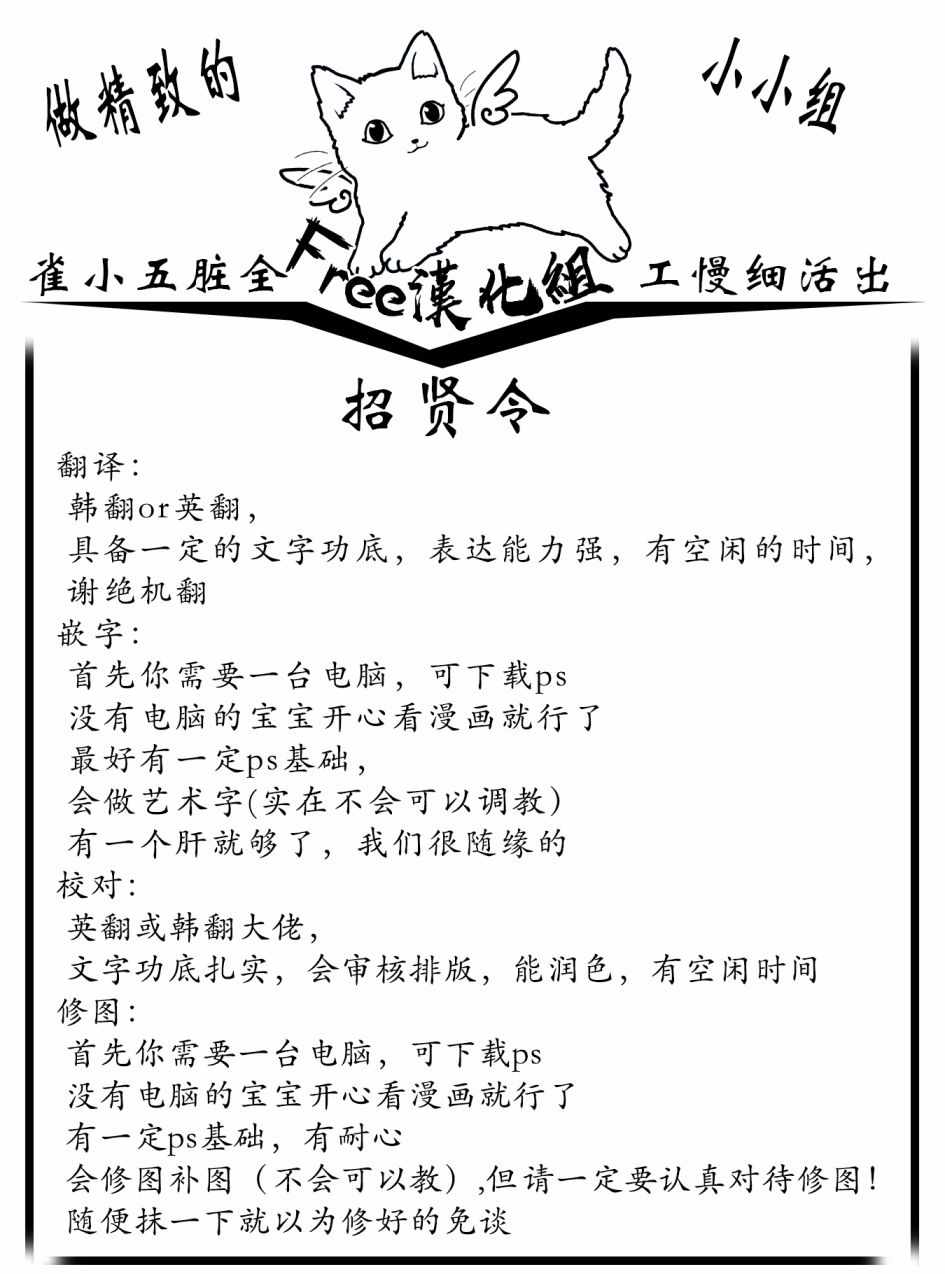 做精致的
小小组
雀小五脏全
Free漢化組
工慢细活出
招贤令
翻译：
韩翻or英翻，
具备一定的文字功底，表达能力强，有空闲的时间，
谢绝机翻
嵌字：
首先你需要一台电脑，可下载ps
没有电脑的宝宝开心看漫画就行了
最好有一定ps基础，
会做艺术字(实在不会可以调教）
有一个肝就够了，我们很随缘的
校对：
英翻或韩翻大佬，
文字功底扎实，会审核排版，能润色，有空闲时间
修图：
首先你需要一台电脑，可下载ps
没有电脑的宝宝开心看漫画就行了
有一定ps基础，有耐心
会修图补图（不会可以教）,但请一定要认真对待修图！
随便抹一下就以为修好的免谈